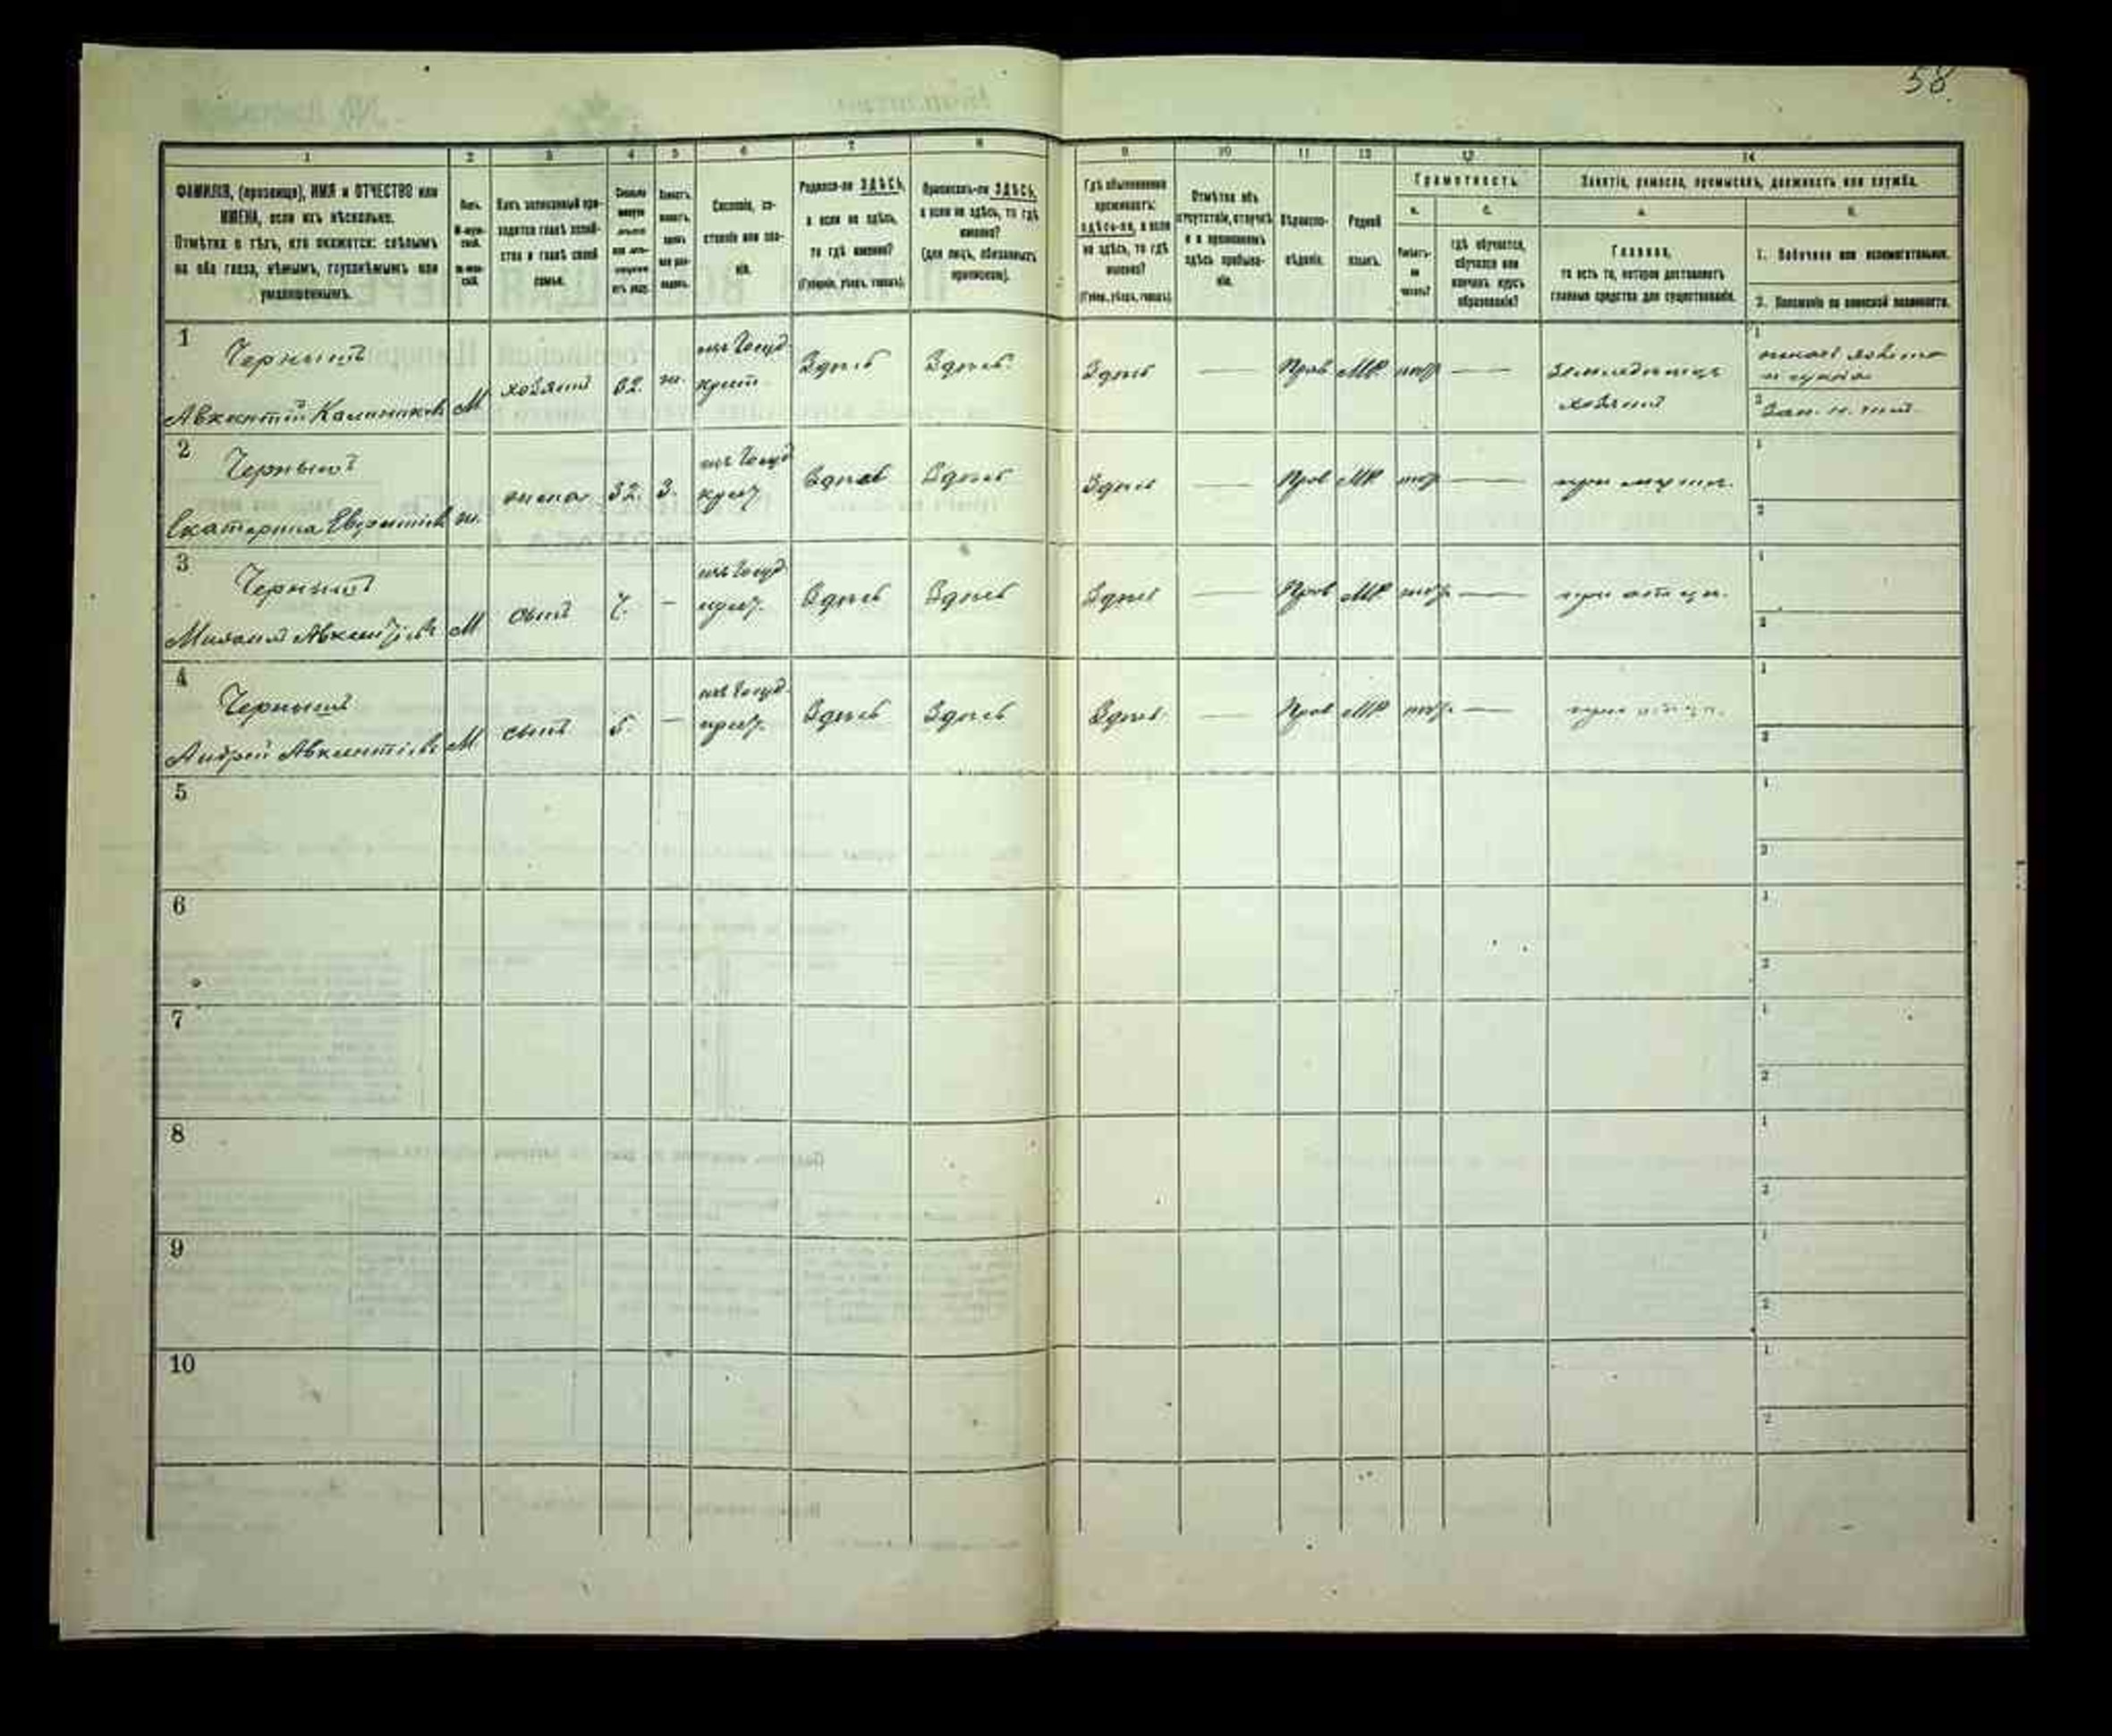 58
1 2 3 4 5 6 7 8 9 10 11 12 13 14
ФАМИЛІЯ, (прозвище), ИМЯ и ОТЧЕСТВО или
ИМЕНА, если ихъ нѣсколько.
Отмѣтка о тѣхъ, кто окажется: слѣпымъ
на оба глаза, нѣмымъ, глухонѣмымъ или
умалишеннымъ.
Полъ.
М-муж-
ской.
Какъ записанный при-
ходится главѣ хозяй-
ства и главѣ своей
семьи.
Сколько
Сословіе, со-
стояніе или зва-
ніе.
Родился-ли ЗДѢСЬ,
а если не здѣсь,
то гдѣ именно?
(Губернія, уѣздъ, городъ).
Приписанъ-ли ЗДѢСЬ,
а если не здѣсь, то гдѣ
именно?
(для лицъ, обязанныхъ
припискою).
Гдѣ обыкновенно
проживаетъ:
здѣсь-ли, а если
не здѣсь, то гдѣ
именно?
(Губер., уѣздъ, городъ).
Отмѣтка объ
отсутствіи, отлучкѣ
и о временномъ
здѣсь пребыва-
ніи.
Вѣроиспо-
вѣданіе.
Родной
языкъ.
Грамотность.
а.
Умѣетъ-
ли
читать?
б.
гдѣ обучается,
обучался или
кончилъ курсъ
образованія?
Занятіе, ремесло, промыселъ, должность или служба.
а.
Главное,
то есть то, которое доставляетъ
главныя средства для существованія.
б.
1. Побочное или вспомогательное.
2. Положеніе по воинской повинности.
1 Чернышъ
Авксентій Калиников М хозяинъ 32. ж. изъ Госуд. крест. Здѣсь Здѣсь. Здѣсь — Прав МР негр — Земледѣлецъ
хозяинъ
1
2
2 Чернышъ
Екатерина М ж. жена 32. З. изъ Госуд крест. Здѣсь Здѣсь Здѣсь — Прав МР негр. — при мужѣ.
1
2
3 Чернышъ
Михаилъ Авксентіевъ М сынъ 7. — изъ Госуд. крест. Здѣсь Здѣсь Здѣсь — Прав МР негр. — при отцѣ.
1
2
4 Чернышъ
Андрей Авксентіевъ М. сынъ 5. — изъ Госуд. крест. Здѣсь Здѣсь Здѣсь. — Прав МР негр. — при отцѣ.
1
2
5
1
2
6
1
2
7
1
2
8
1
2
9
1
2
10
1
2